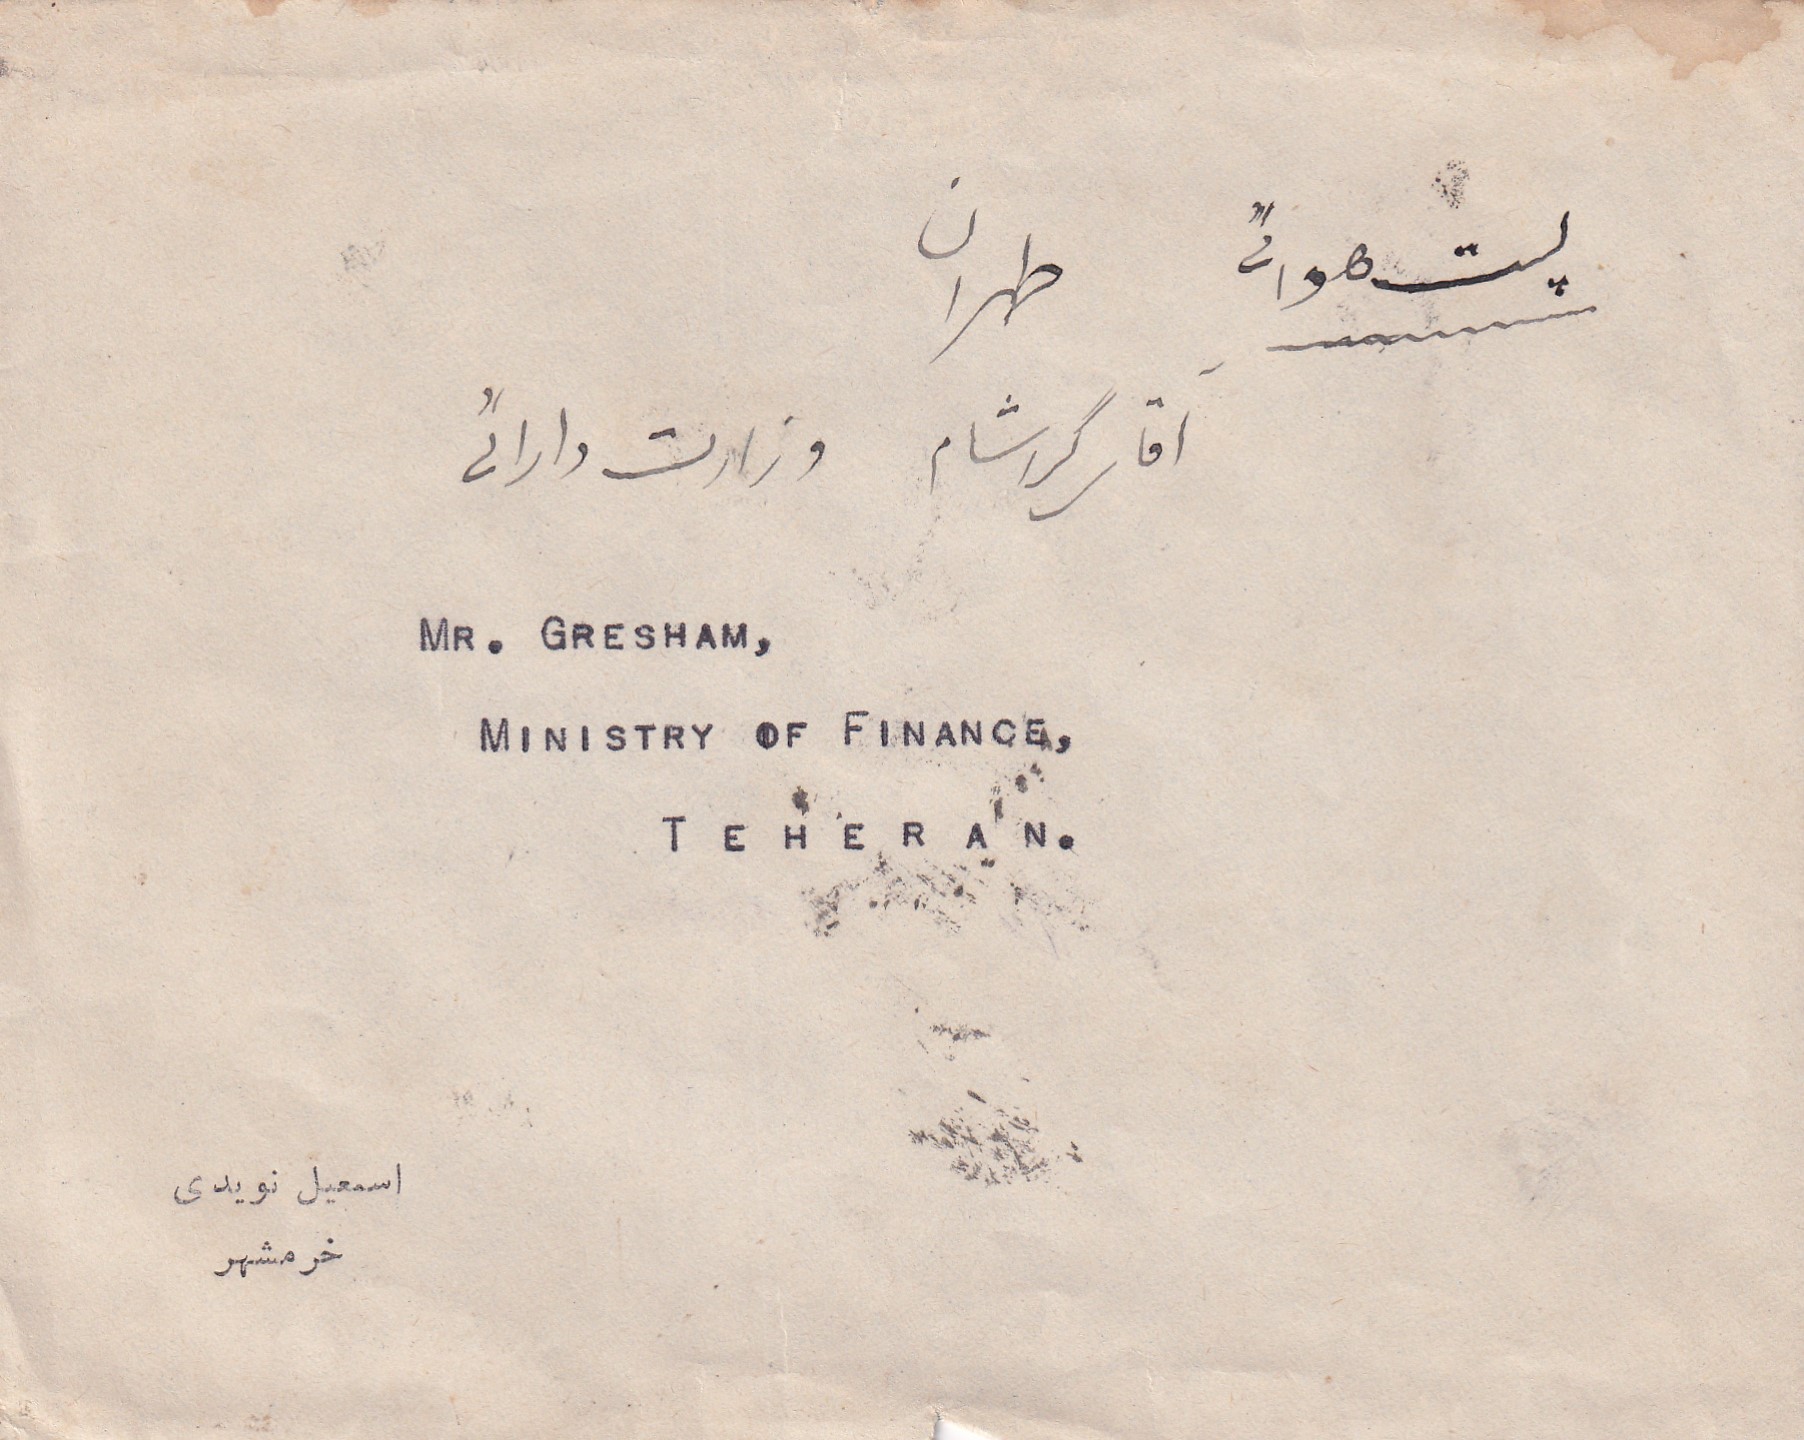 پست هوائی
طهران
آقای گرشام وزارت دارائی
MR. GRESHAM,
MINISTRY OF FINANCE,
TEHERAN.
اسمعیل نویدی
خرمشهر